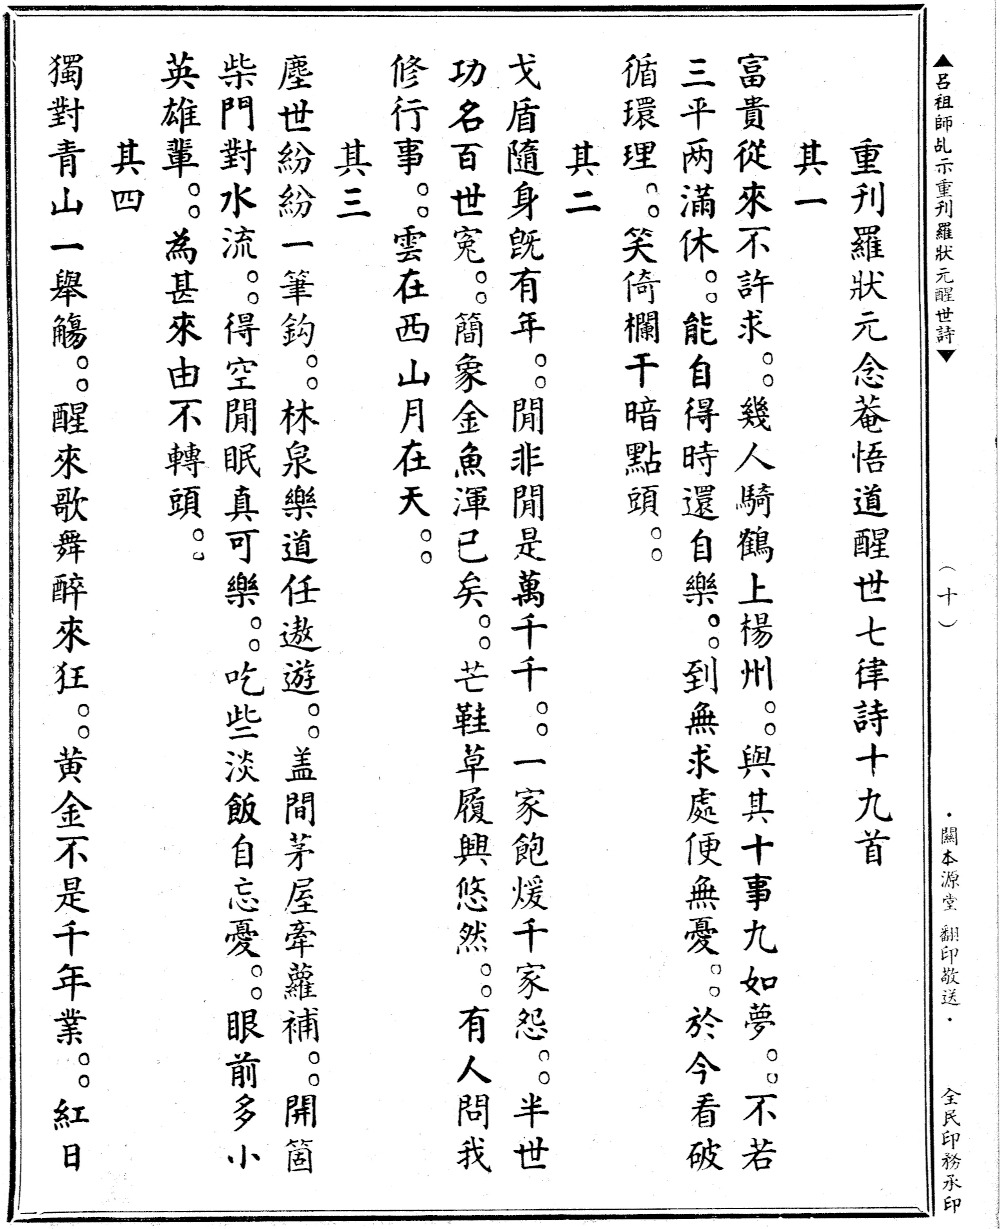 ▲呂祖師乩示重刊羅狀元醒世詩▼ （十） ·關本源堂 翻印敬送· 全民印務承印
重刊羅狀元念菴悟道醒世七律詩十九首
其一
富貴從來不許求。。幾人騎鶴上楊州。。與其十事九如夢。。不若
三平两滿休。。能自得時還自樂。。到無求處便無憂。。於今看破
循環理。。笑倚欄干暗點頭。。
其二
戈盾隨身旣有年。。閒非閒是萬千千。。一家飽煖千家怨。。半世
功名百世寃。。簡象金魚渾已矣。。芒鞋草履興悠然。。有人問我
修行事。。雲在西山月在天。。
其三
塵世紛紛一筆鈎。。林泉樂道任遨遊。。盖間茅屋牽蘿補。。開箇
柴門對水流。。得空閒眠真可樂。。吃些淡飯自忘憂。。眼前多小
英雄輩。。為甚來由不轉頭。。
其四
獨對青山一舉觴。。醒來歌舞醉來狂。。黄金不是千年業。。紅日